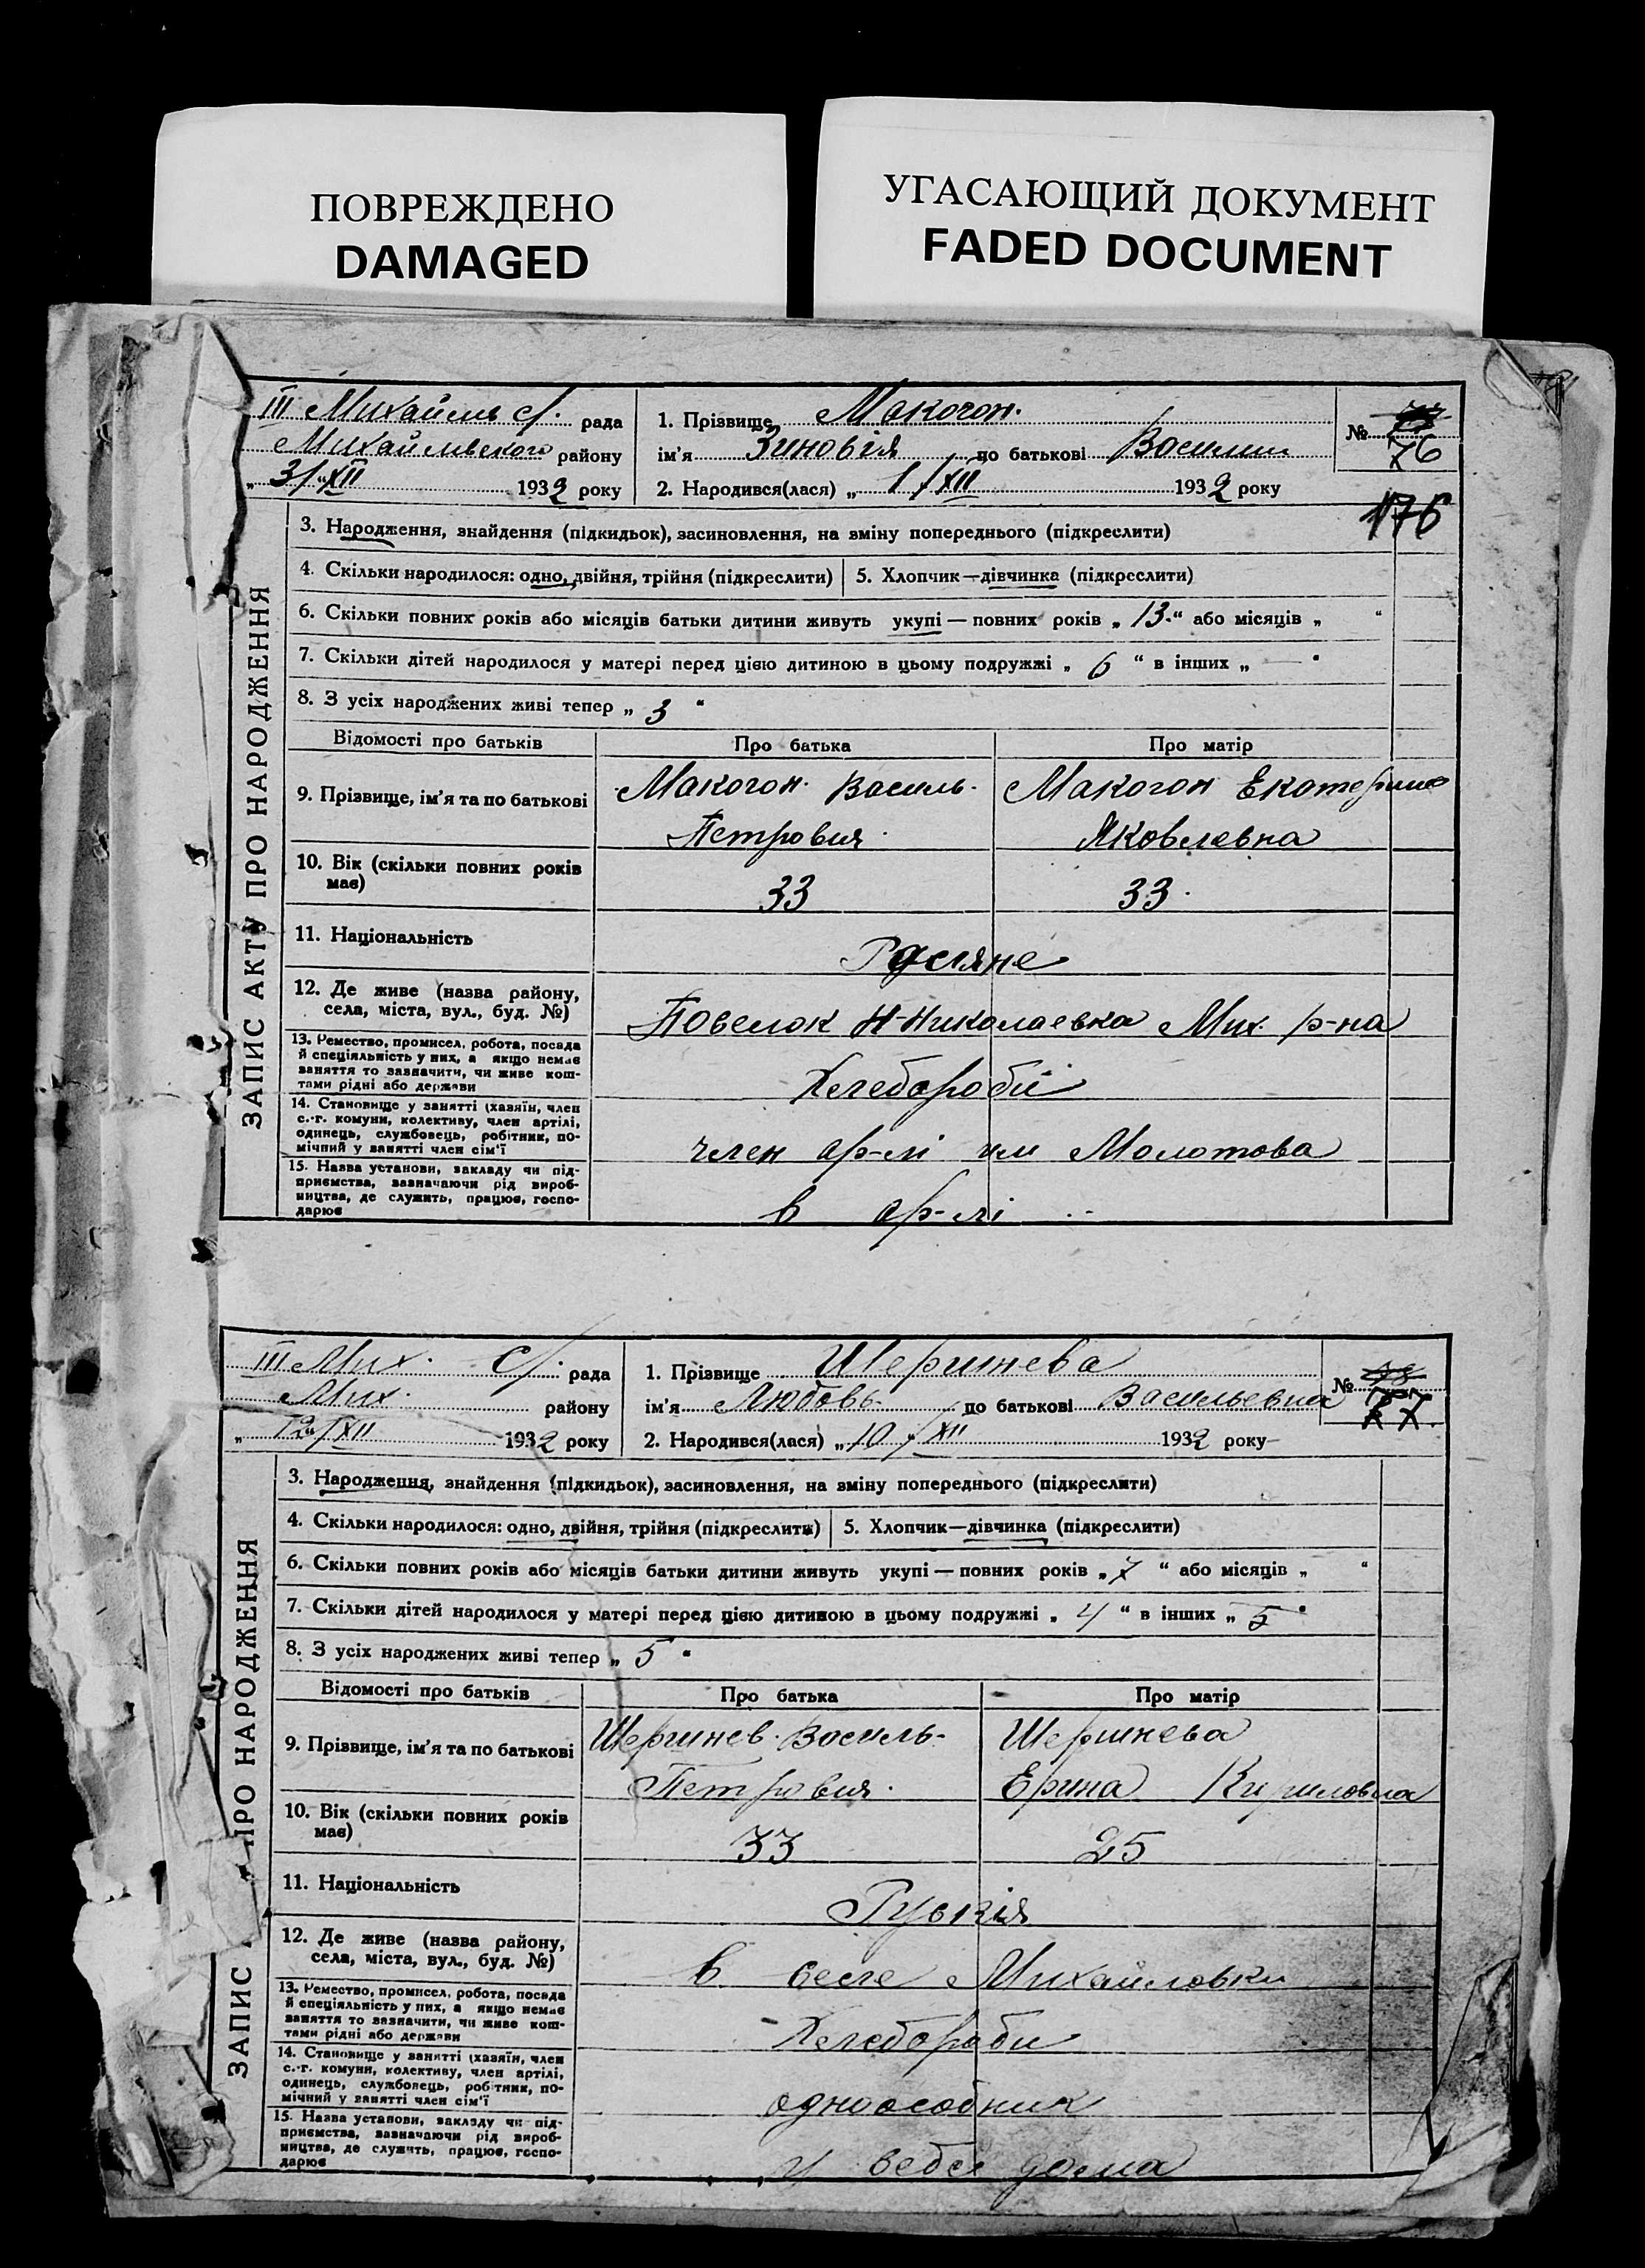 ПОВРЕЖДЕНО
DAMAGED
УГАСАЮЩИЙ ДОКУМЕНТ
FADED DOCUMENT
ЗАПИС АКТУ ПРО НАРОДЖЕННЯ
III Михайль с/. рада
Михайлівского району
„ 31 “ XII 1932 року
1. Прізвище Макогон.
ім'я Зиновія по батькові
2. Народився(лася) „ 1 / XII 1932 року
№ 76
176
3. Народження, знайдення (підкидьок), засиновлення, на зміну попереднього (підкреслити)
4. Скільки народилося: одно, двійня, трійня (підкреслити) 5. Хлопчик—дівчинка (підкреслити)
6. Скільки повних років або місяців батьки дитини живуть укупі — повних років „ 13. “ або місяців „ “
7. Скільки дітей народилося у матері перед цією дитиною в цьому подружжі „ 6 “ в інших „ — “
8. З усіх народжених живі тепер „ 3 “
Відомості про батьків Про батька Про матір
9. Прізвище, ім'я та по батькові Макогон Василь Макогон Екатерина
Петровия Яковлевна
10. Вік (скільки повних років має) 33 33
11. Національність Росіяне
12. Де живе (назва району, села, міста, вул., буд. №) Повелок Н-Николаевка Мих. р-на
13. Ремество, промисел, робота, посада й спеціяльність у них, а якщо немає заняття то зазначити, чи живе коштами рідні або держави Хлебороби
14. Становище у занятті (хазяїн, член с.-г. комуни, колективу, член артілі, одинець, службовець, робітник, помічний у занятті член сім'ї член ар-лі им Молотова
15. Назва установи, закладу чи підприємства, зазначаючи рід виробництва, де служить, працює, господарює в ар-лі
ЗАПИС ПРО НАРОДЖЕННЯ
III Мих. с/. рада
Мих. району
„ 12 “ / XII 1932 року
1. Прізвище Шершнева
ім'я Любовь по батькові Васильевна
2. Народився(лася) „ 10 / XII 1932 року
№ 77
3. Народження, знайдення (підкидьок), засиновлення, на зміну попереднього (підкреслити)
4. Скільки народилося: одно, двійня, трійня (підкреслити) 5. Хлопчик—дівчинка (підкреслити)
6. Скільки повних років або місяців батьки дитини живуть укупі — повних років „ 7 “ або місяців „ “
7. Скільки дітей народилося у матері перед цією дитиною в цьому подружжі „ 4 “ в інших „ 5 “
8. З усіх народжених живі тепер „ 5 “
Відомості про батьків Про батька Про матір
9. Прізвище, ім'я та по батькові Шершнев Василь Шершнева
Петровия Ерина Кириловна
10. Вік (скільки повних років має) 33 25
11. Національність Руськія
12. Де живе (назва району, села, міста, вул., буд. №) в селе Михайловки
13. Ремество, промисел, робота, посада й спеціяльність у них, а якщо немає заняття то зазначити, чи живе коштами рідні або держави Хлебороби
14. Становище у занятті (хазяїн, член с.-г. комуни, колективу, член артілі, одинець, службовець, робітник, помічний у занятті член сім'ї одноособник
15. Назва установи, закладу чи підприємства, зазначаючи рід виробництва, де служить, працює, господарює у себя дома